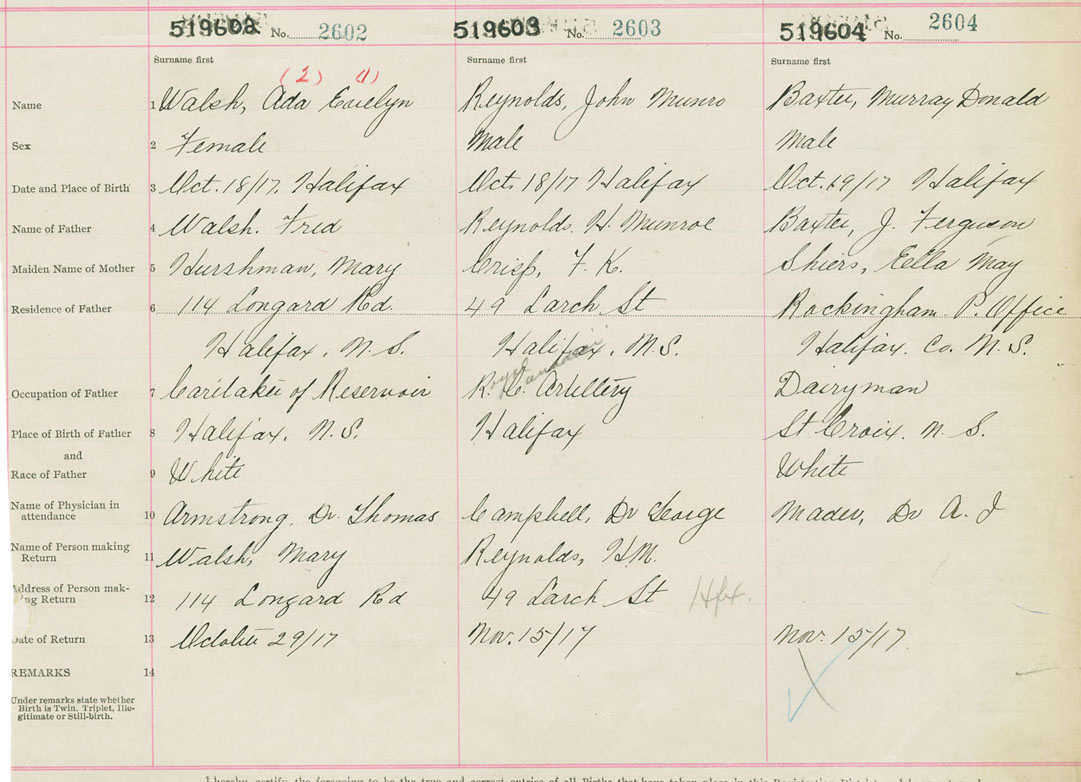 519602 No. 2602 519603 No. 2603 519604 No. 2604
Surname first Surname first Surname first
(2) (1)
Name 1 Walsh, Ada Evelyn Reynolds, John Munro Baxter, Murray Donald
Sex 2 Female Male Male
Date and Place of Birth 3 Oct. 18/17, Halifax Oct. 18/17 Halifax Oct. 29/17 Halifax
Name of Father 4 Walsh. Fred Reynolds. H. Munroe Baxter, J. Ferguson
Maiden Name of Mother 5 Hurshman, Mary Crisp, F. K. Shiers, Eella May
Residence of Father 6 114 Longard Rd. 49 Larch St Rockingham P. Office
Halifax, N.S. Halifax, N.S. Halifax. Co. N.S.
Royal Canadian
Occupation of Father 7 Caritaker of Reservoir R. C. Artillery Dairyman
Place of Birth of Father 8 Halifax, N.S. Halifax St Croix. N.S.
and
Race of Father 9 White White
Name of Physician in
attendance 10 Armstrong, Dr. Thomas Campbell, Dr George Mader, Dr A. J
Name of Person making
Return 11 Walsh, Mary Reynolds, H.M.
Address of Person mak-
ing Return 12 114 Longard Rd 49 Larch St Hfx.
Date of Return 13 October 29/17 Nov. 15/17 Nov. 15/17
REMARKS 14
Under remarks state whether
Birth is Twin, Triplet, Ille-
gitimate or Still-birth.
I hereby, certify, the foregoing to be the true and correct entries of all Births that have taken place in this Registration District